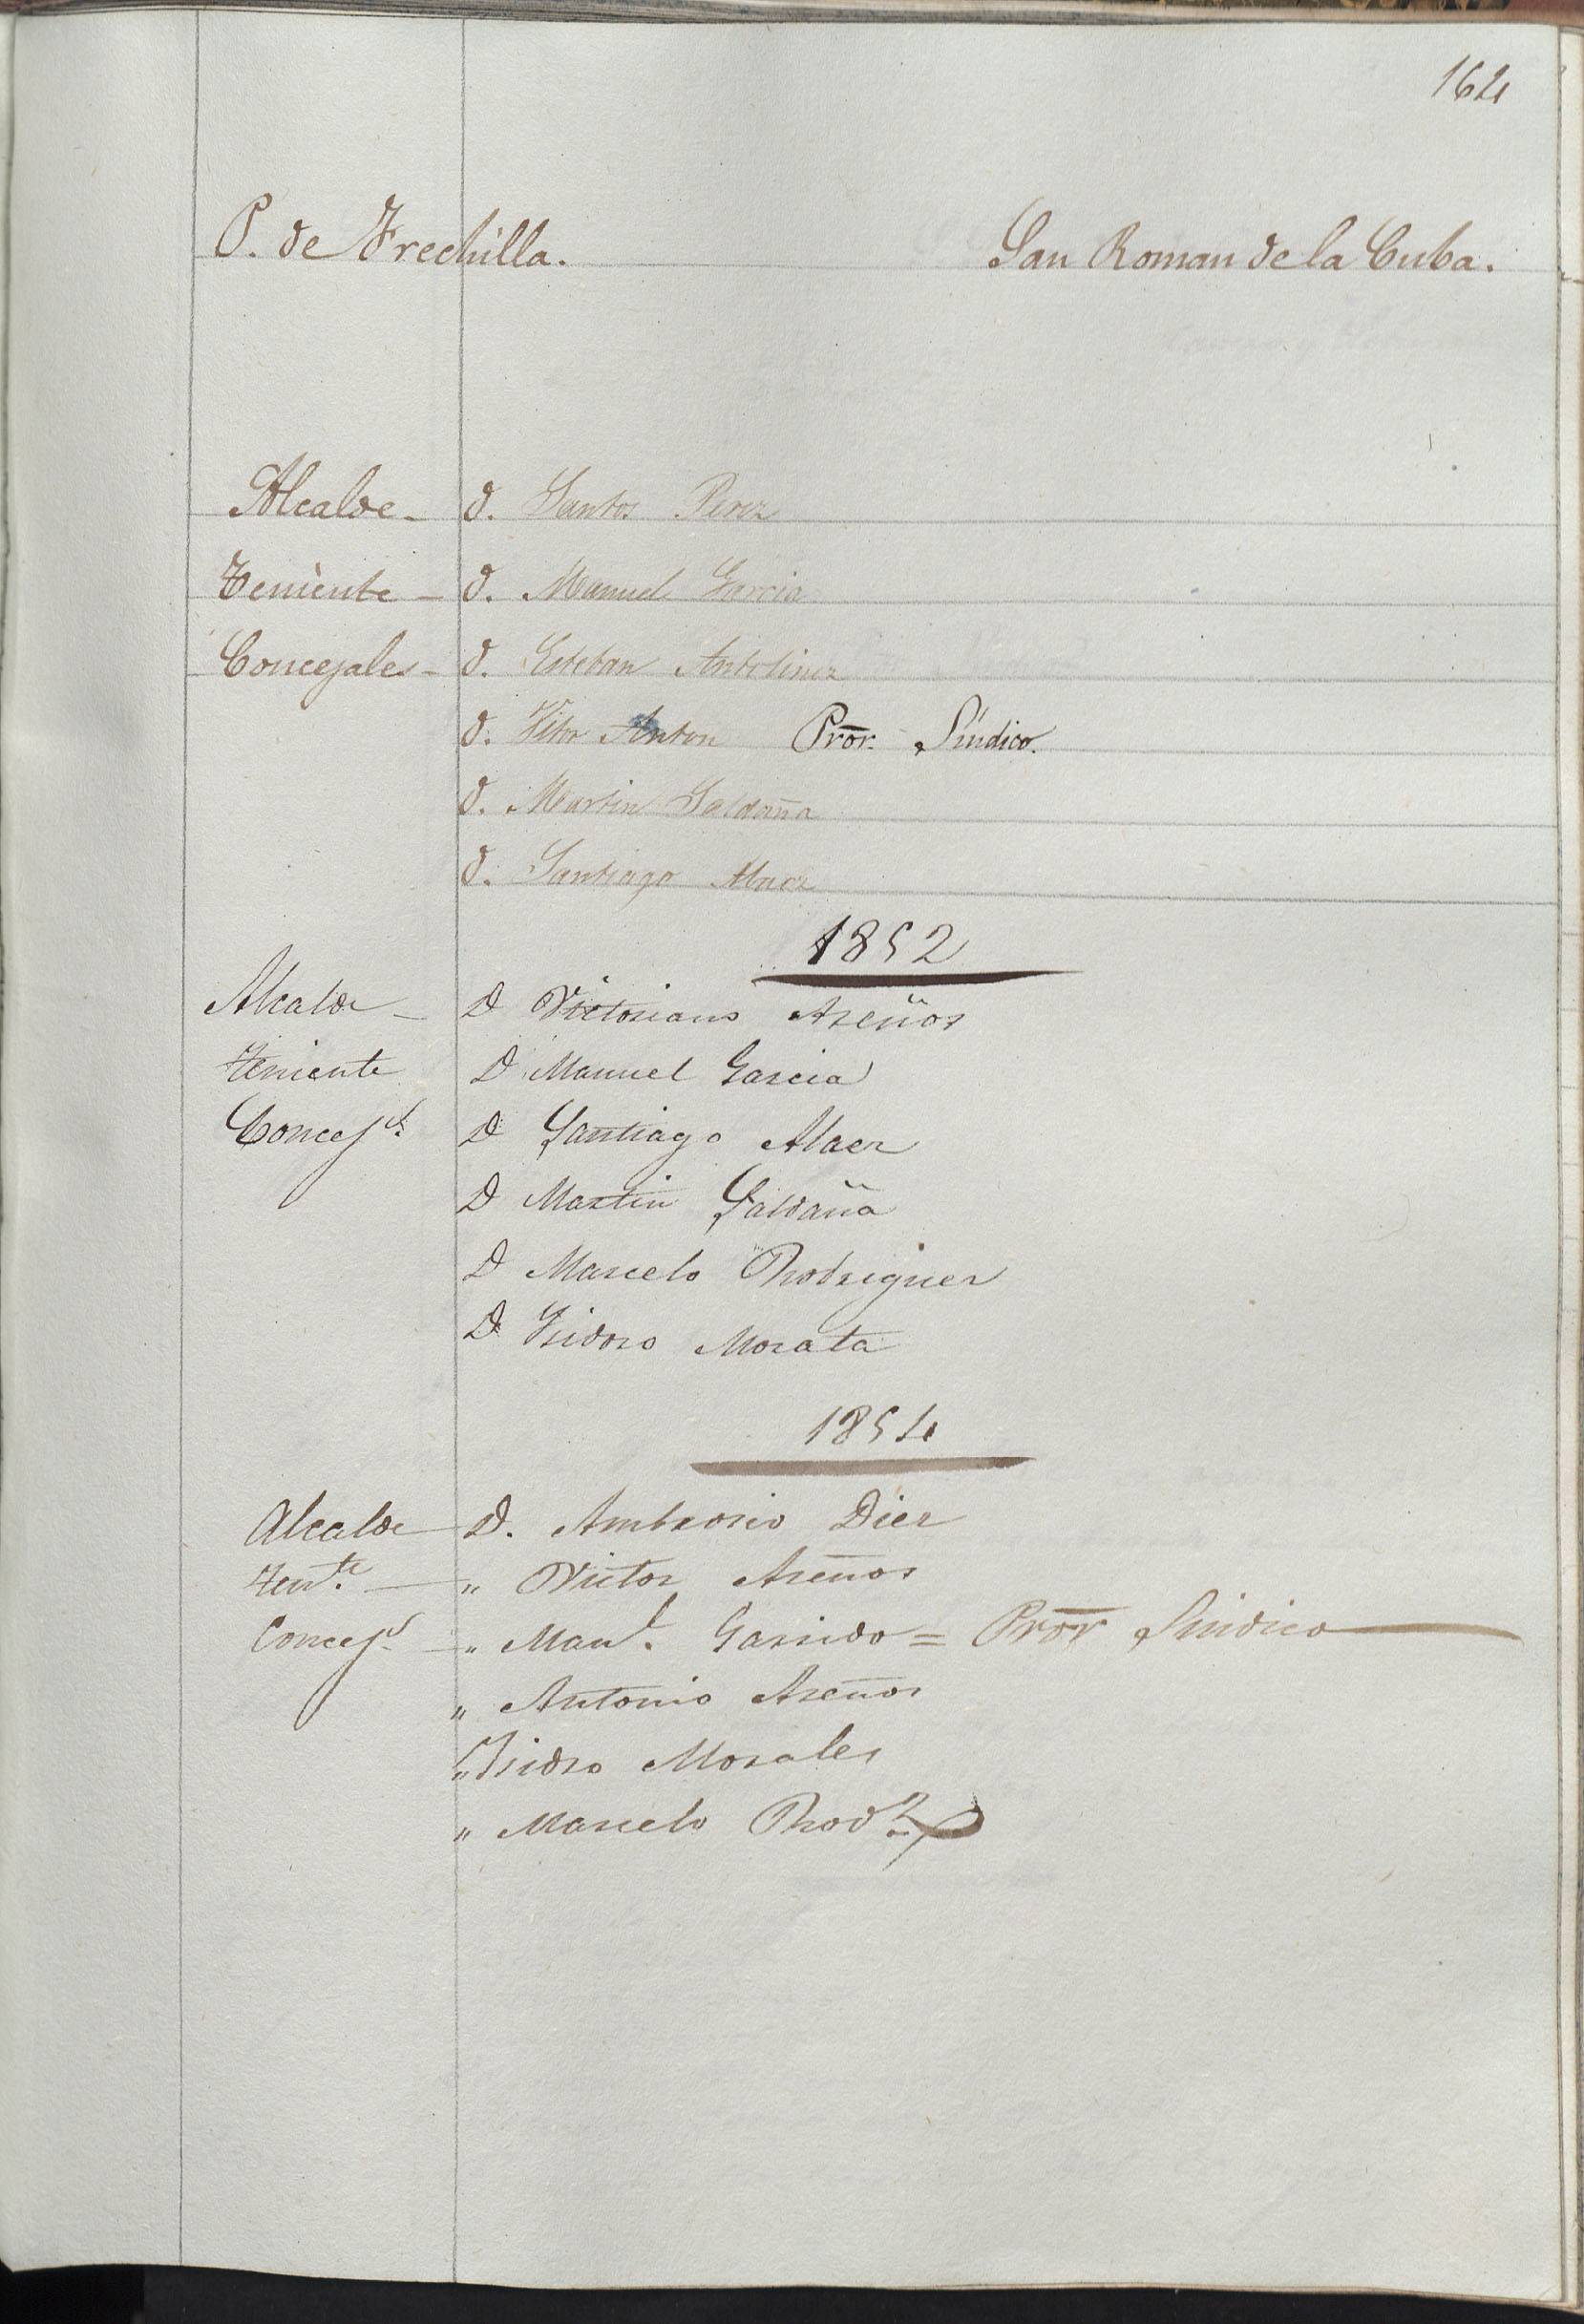 164
P. de Frechilla. San Roman de la Cuba.
Alcalde - d. Santos Perez
Teniente - d. Manuel Garcia
Concejales - d. Esteban Antolinez
d. Vitor Anton Pror. Síndico.
d. Martin Saldaña
d. Santiago Alaez
1852
Alcalde - D Victoriano Areños
Teniente D Manuel Garcia
Concejs. D Santiago Alaez
D Martin Saldaña
D Marcelo Rodriguez
D Isidoro Morata
1854
Alcalde D. Ambrosio Diez
Tente. — " Victor Areños
Concejs - " Manl. Garrido = Pror Sindico
" Antonio Areños
" Isidro Morales
" Marcelo Rodz.